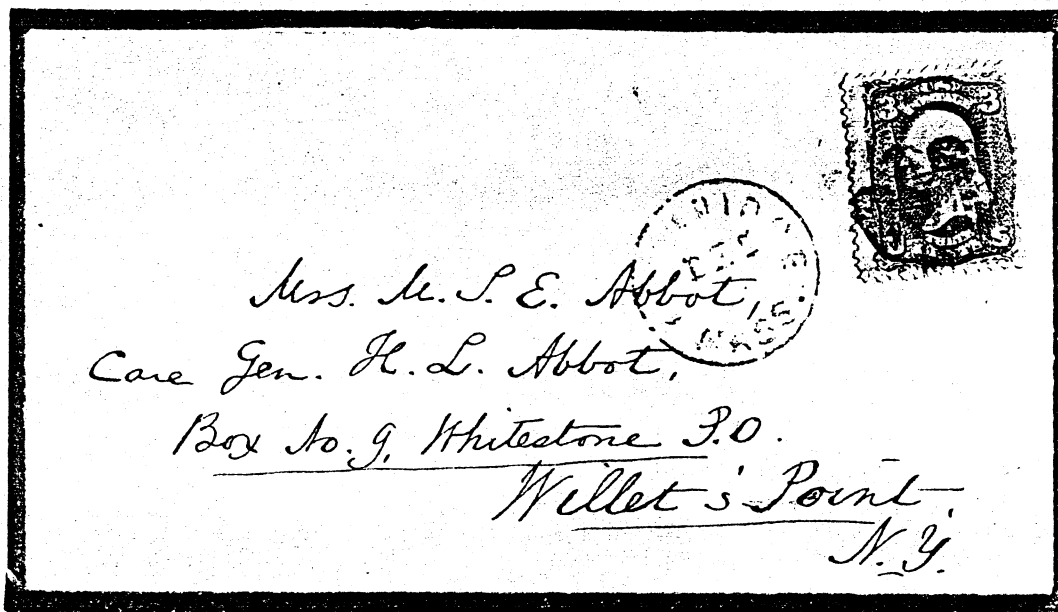 MASS.
Mrs. M. S. E. Abbot,
Care Gen. H. L. Abbot,
Box No. 9, Whitestone P.O.
Willet's Point,
N.Y.